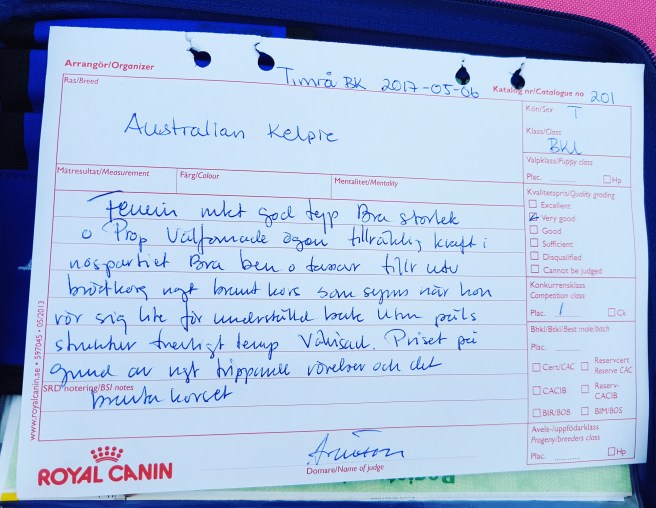 Arrangör/Organizer
Timrå BK 2017-05-06
Katalog nr/Catalogue no 201
Ras/Breed
Australian Kelpie
Kön/Sex T
Klass/Class
BKL
Valpklass/Puppy class
Plac. Hp
Mätresultat/Measurement
Färg/Colour
Mentalitet/Mentality
Kvalitetspris/Quality grading
Excellent
Very good
Good
Sufficient
Disqualified
Cannot be judged
Feminin mkt god typ Bra storlek
o Prop Välformade ögon tillräcklig kraft i
nospartiet Bra ben o tassar tillr utv
bröstkorg ngt brant kors som syns när hon
rör sig lite för underställd bak Utm päls
struktur trevligt temp Välvisad. Priset på
grund av ngt trippande rörelser och det
branta korset
SRD notering/BSI notes
Konkurrensklass
Competition class
Plac. 1 Ck
Bhkl/Btkl/Best male/bitch
Plac.
Cert/CAC
Reservcert
Reserve CAC
CACIB
Reserv-
CACIB
BIR/BOB
BIM/BOS
Avels-/uppfödarklass
Progeny/breeders class
Plac. Hp
www.royalcanin.se • 597045 • 05/2013
ROYAL CANIN
Domare/Name of judge